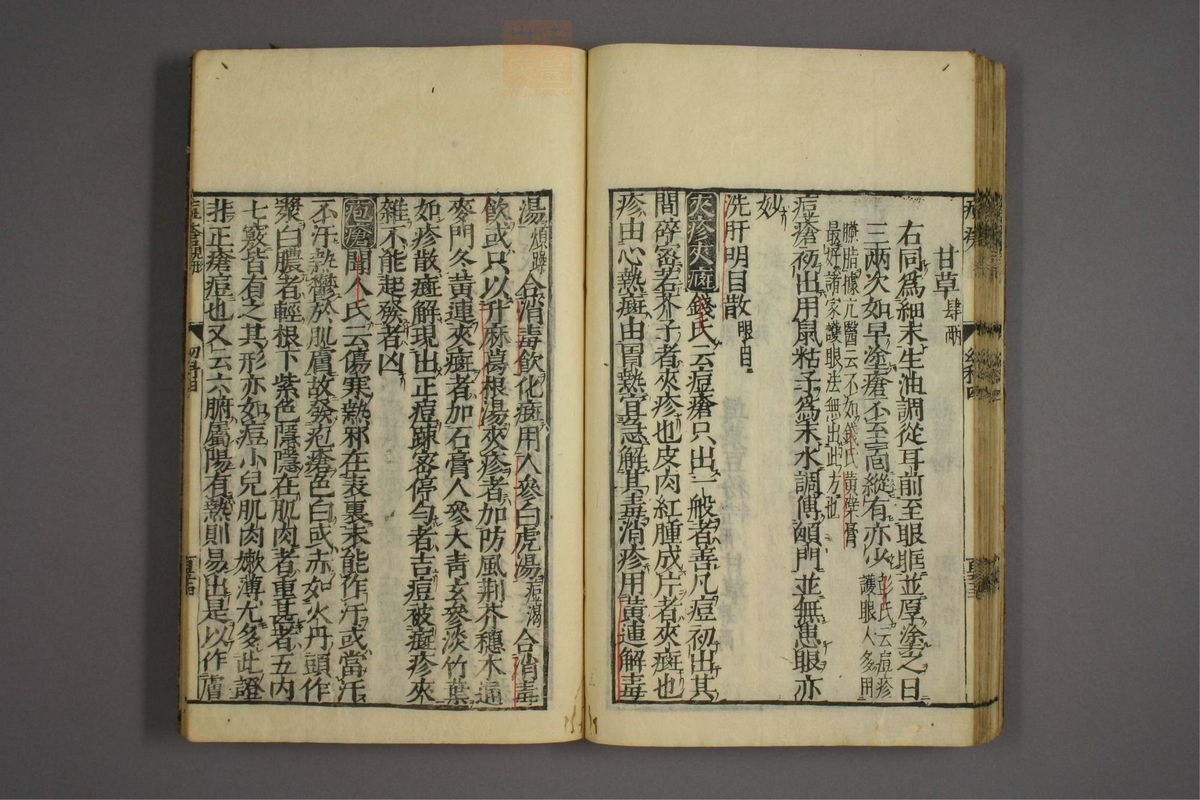 甘草肆兩
右同爲細末生油調從耳前至眼眶並厚塗之日
三兩次如早塗瘡不至面縱有亦少彭氏云痘疹護眼人多用
臙脂據亢醫云不如錢氏黃蘗膏
最好諸家護眼法無出此方也
痘瘡初出用鼠粘子爲末水調傅顖門並無患眼亦
妙
洗肝明目散眼目
夾疹夾癍錢氏云痘瘡只出一般者善凡痘初出其
間碎密若芥子者夾疹也皮肉紅腫成片者夾癍也
疹由心熱癍由胃熱宜急解其毒消疹用黃連解毒
湯煩躁合消毒飲化癍用人參白虎湯痘渴合消毒
飲或只以升麻葛根湯夾疹者加防風荆芥穗木通
麥門冬黃連夾癍者加石膏人參大青玄參淡竹葉
如疹散癍解現出正痘疎密停勻者吉痘破癍疹夾
雜不能起發者凶
疱瘡聞人氏云傷寒熱邪在表裏未能作汗或當汗
不汗熱鬱於肌膚故發疱瘡色白或赤如火丹頭作
漿白膿者輕根下紫色隱隱在肌肉者重甚者五内
七竅皆有之其形亦如痘小兒肌肉嫩薄尤多此證
非正瘡痘也又云六腑屬陽有熱則易出是以作膚